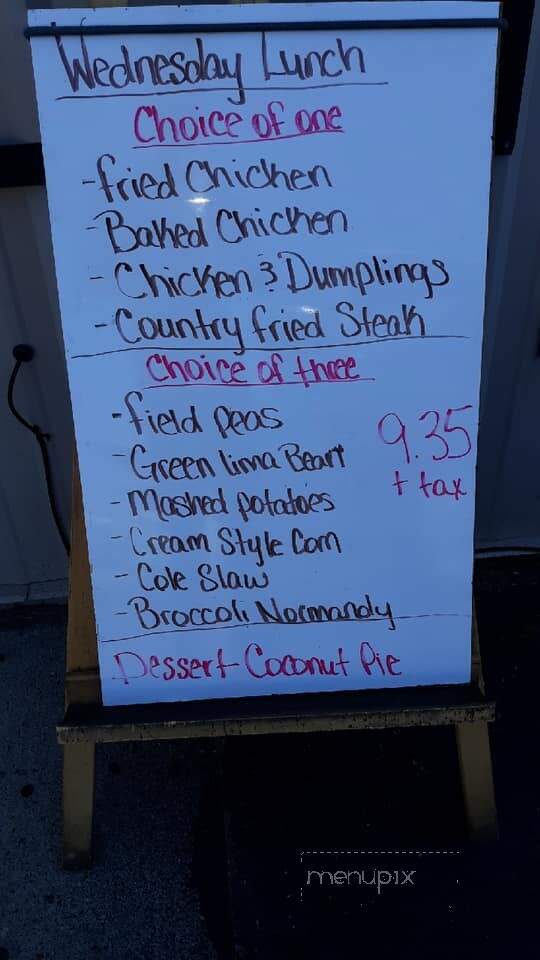 Wednesday Lunch
Choice of one
-Fried Chicken
-Baked Chicken
-Chicken & Dumplings
-Country Fried Steak
Choice of three
-Field Peas
-Green lima Bean
-Mashed potatoes
-Cream Style Corn
-Cole Slaw
-Broccoli Normandy
9.35
+ tax
Dessert-Coconut Pie
menupix